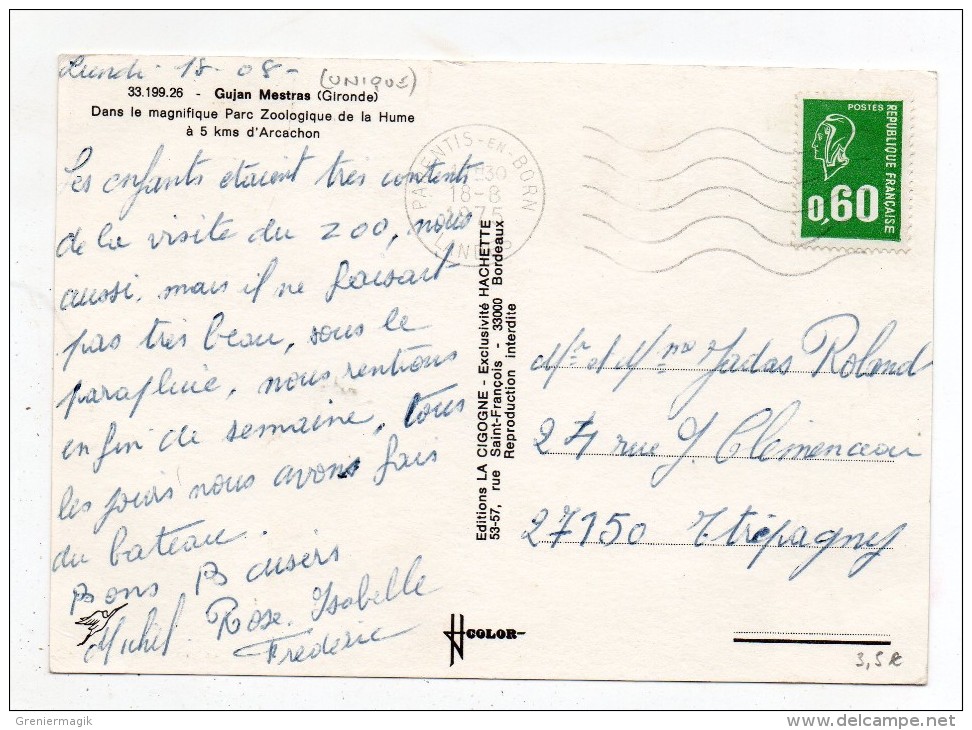 Lundi 18-08-
(UNIQUE)
33.199.26 - Gujan Mestras (Gironde)
Dans le magnifique Parc Zoologique de la Hume
à 5 kms d'Arcachon
Les enfants étaient très contents
de la visite du zoo, nous
aussi, mais il ne faisait
pas très beau, sous le
parapluie, nous rentions
en fin de semaine, tous
les jours nous avons fais
du bateau.
Bons Baisers
Michel. Rose. Isabelle
Frédéric
PARENTIS-EN-BORN
18-8
1975
LANDES
POSTES
REPUBLIQUE FRANÇAISE
0,60
Editions LA CIGOGNE - Exclusivité HACHETTE
53-57, rue Saint-François - 33000 Bordeaux
Reproduction interdite
Mr et Mme Jadas Roland
27 rue G. Clémenceau
27150 Etrépagny
COLOR-
3,5 €
Greniermagik
www.delcampe.net